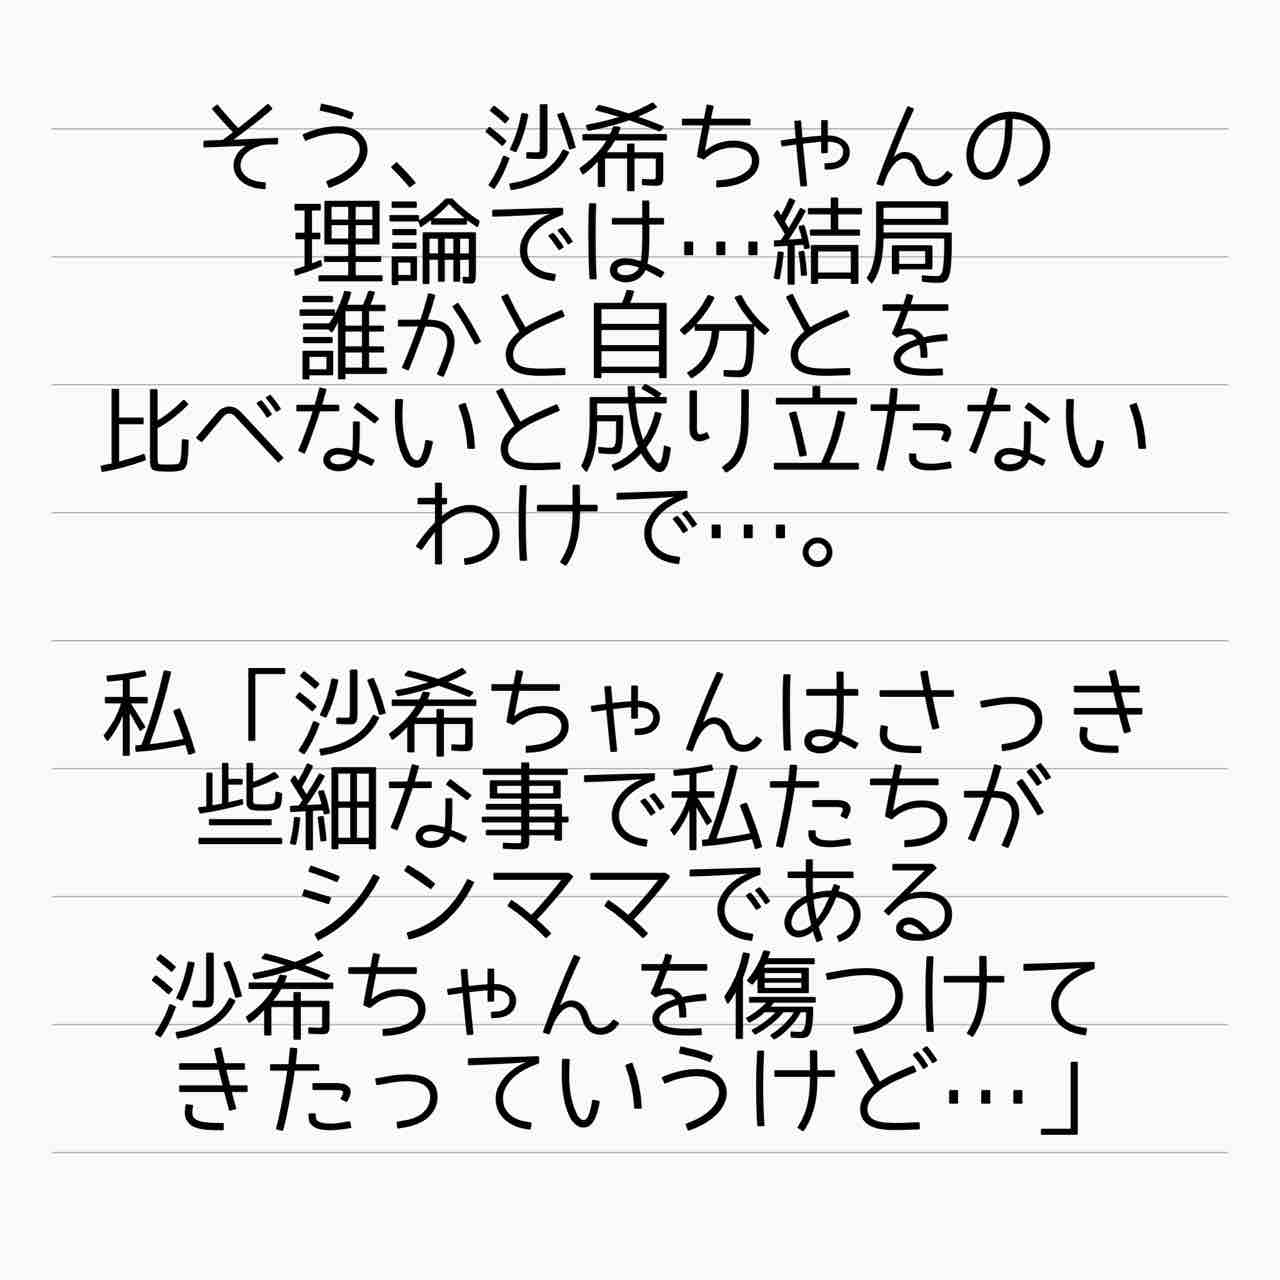 そう、沙希ちゃんの
理論では…結局
誰かと自分とを
比べないと成り立たない
わけで…。
私「沙希ちゃんはさっき
些細な事で私たちが
シンママである
沙希ちゃんを傷つけて
きたっていうけど…」